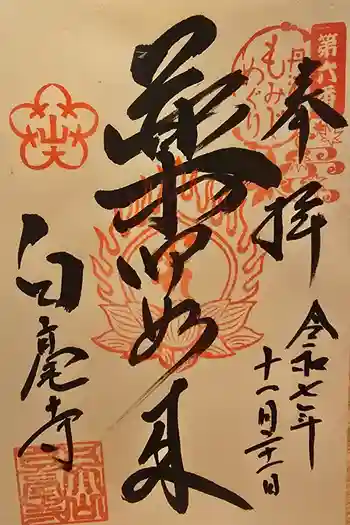 奉拝
令和七年
十一月二十一日
第六番
もみじ
めぐり
薬師如来
山天
白毫寺